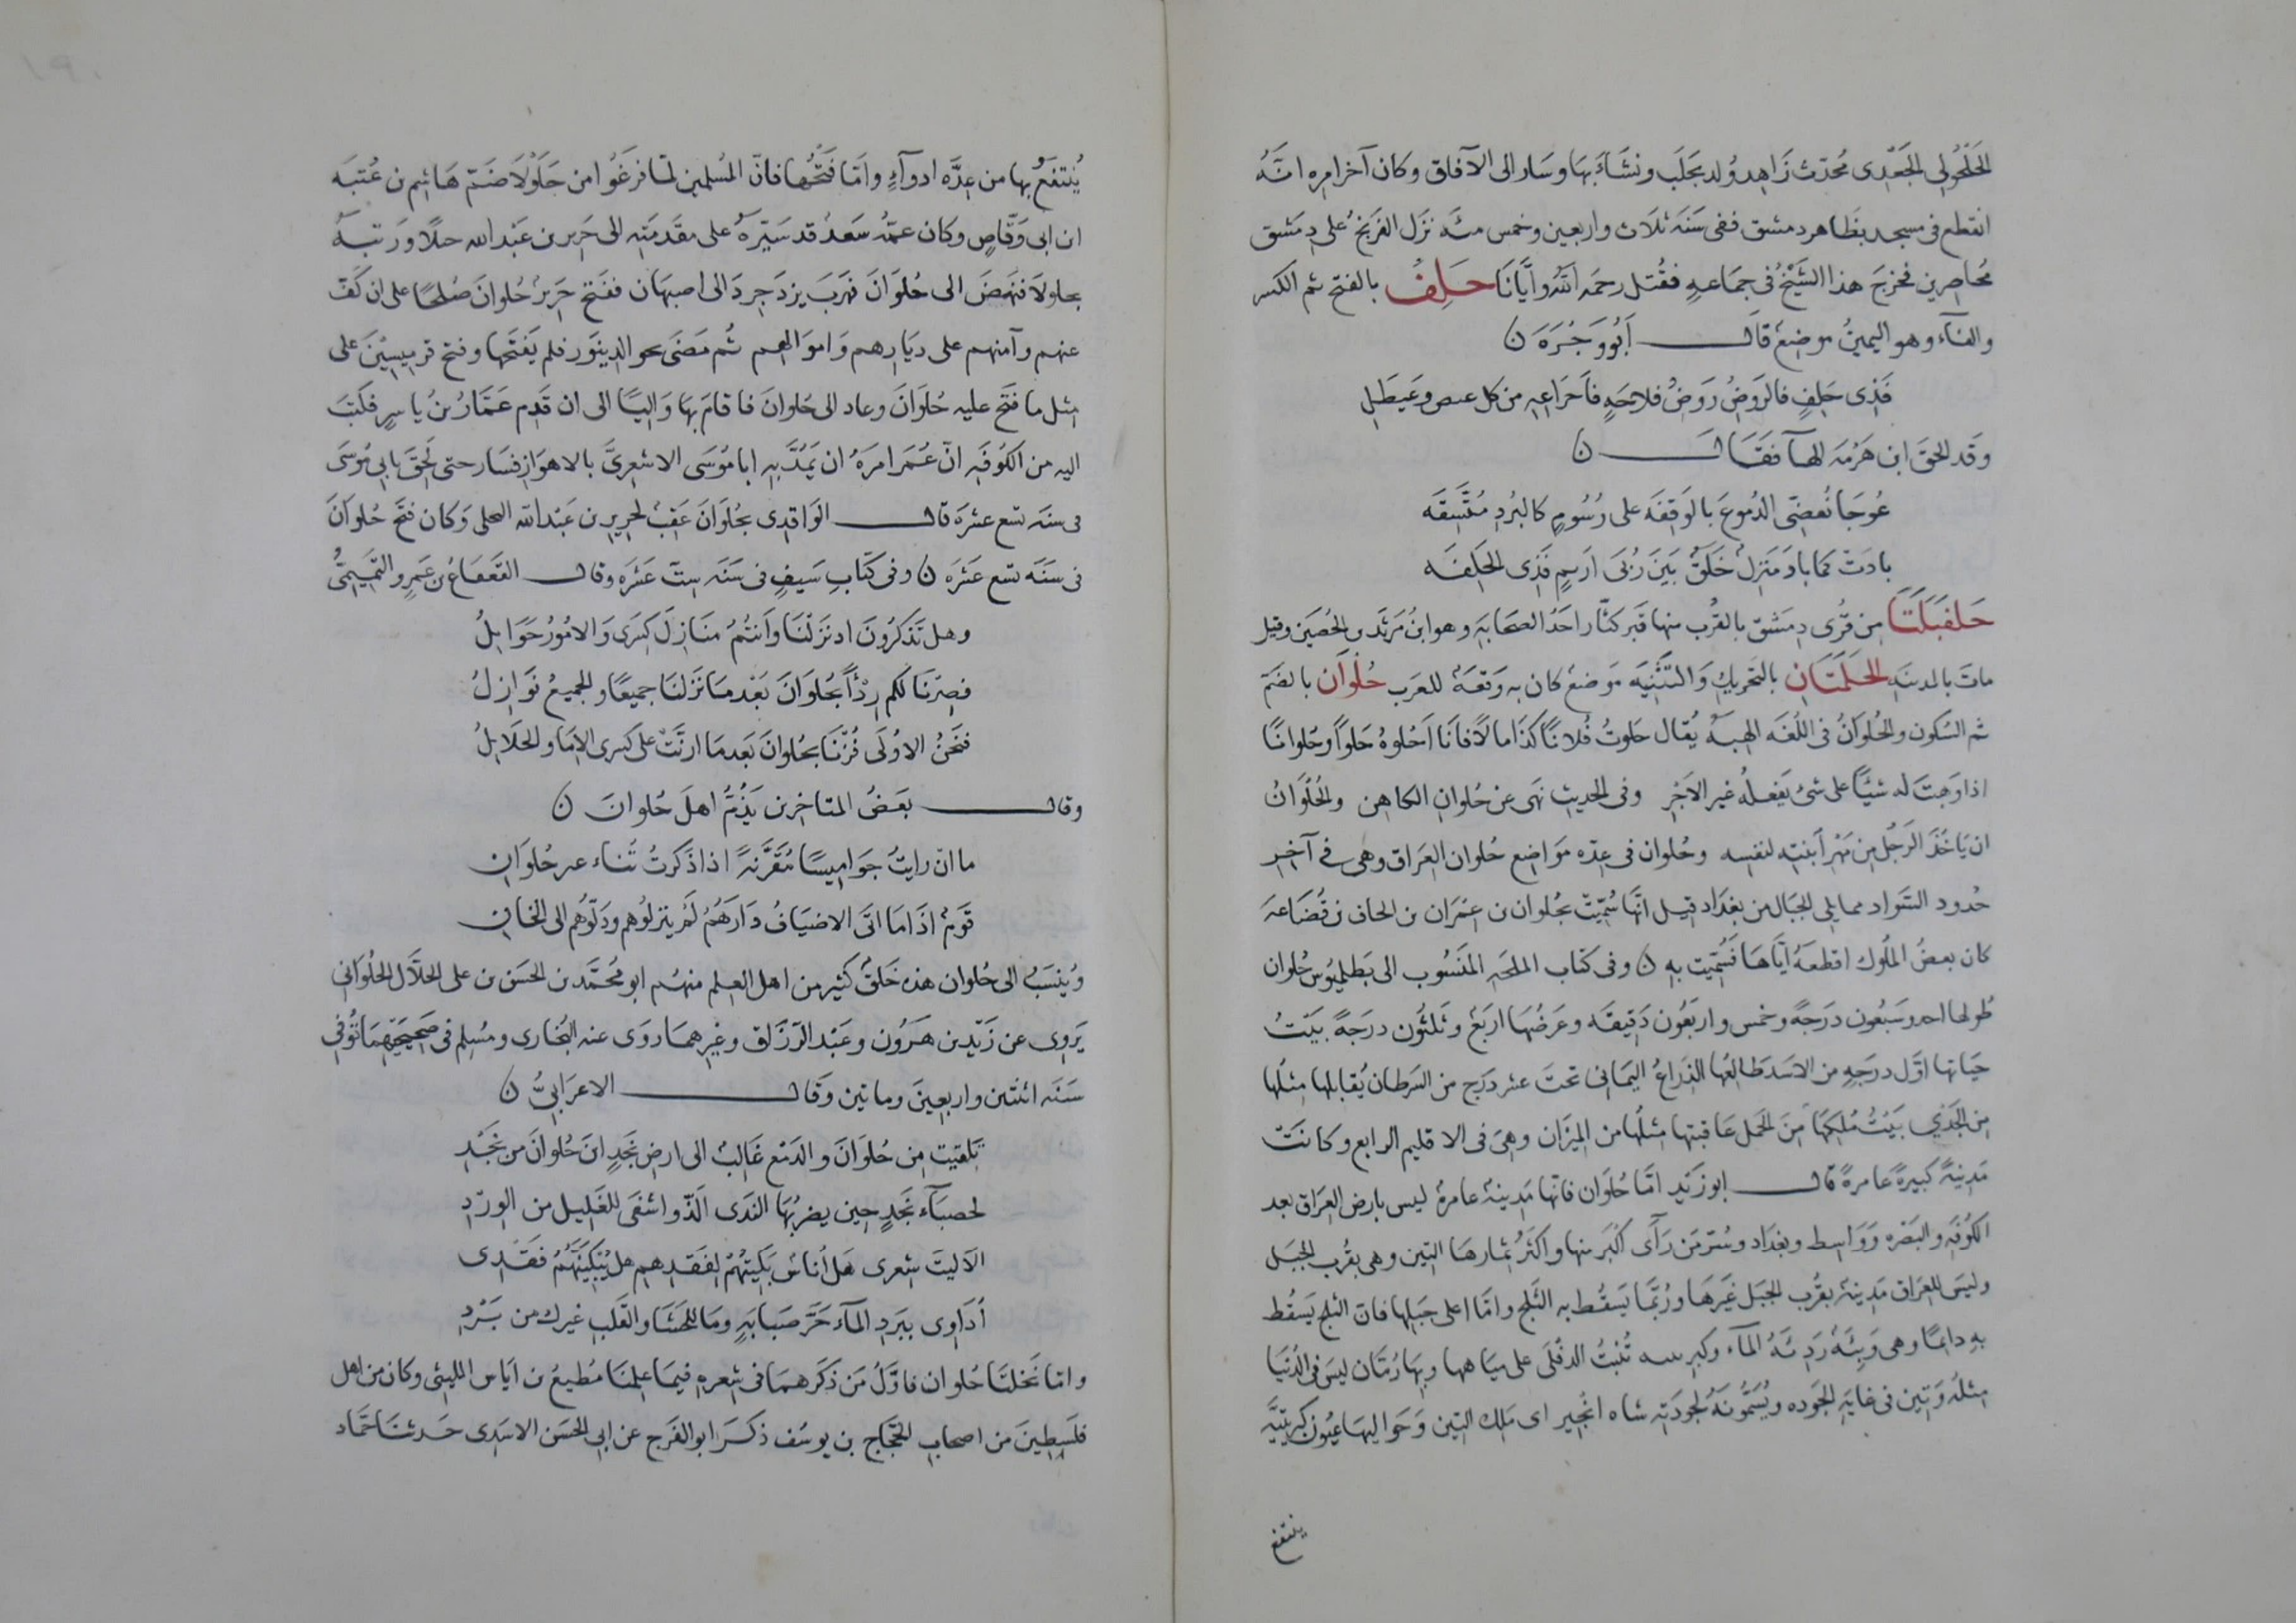 الحَلْحُولى الجَعْدى محدّث زَاهِد وُلد بحَلَب ونشَأَ بهَا وسَار الى الآفاق وكان آخر امره انّهُ
انقطع فى مسجد بظَاهر دمشق ففى سَنَه ثلَاث واربعين وخمس مئه نزَل الفرَنْجُ على دِمَشق
مُحاصِرين فخرجَ هذا الشَيْخُ فى جمَاعهٍ فقُتل رحمَه اللّه وايّانَا حَلِفُ بالفتح ثم الكسر
والفاء وهو اليمينُ موضِعٌ قال أبُو وَجْزَةَ ن
فَذِى حَلِفٍ فالرَوضُ رَوضُ فلاحَهٍ فاَحْراعِهِ من كل عىص وعَيطَلِ
وَقَد الحقَ ابن هَرْمَه الهآ فقَالَ ن
عُوجَا نُقضّى الدُموعَ بالوَقِفَه على رُسُومٍ كالبُردِ مُنْتَسِقَه
بادَتْ كما بادَ مَنزِلٌ خَلَقٌ بَينَ رُبَى ارَيمٍ فذِى الحَلِفَه
حَلفَبَلَتَا مِن قُرى دِمَشق بالقُرب منها قبر كنّاز احَدُ الصحَابَهِ وهو ابنُ مَرثَد بن الحُصَين وقيل
ماتَ بالمدينَه الحَلَمَتَانِ بالتحريكِ وَالتَثْنِيَه مَوضعٌ كان به وَقعَةٌ للعَرب حُلْوَان بالضَمّ
ثم السُكون والحُلوَانُ فى اللُغَه الهِبَه يُقال حَلوتُ فُلانًا كذَا مالًا فانَا اَحْلوهُ حَلواً وحُلوانًا
اذا وَهَبتَ له شيئًا على شئ يَفعَلهُ غير الاَجْرِ وفى الحديثِ نَهَى عن حُلوانِ الكاهن والحُلوَانُ
ان يَاخُذَ الرَجُل مِن مَهْرِ اَبنتِه لنفسِه وحُلوان فى عِدّه مَوَاضِع حُلوان العِرَاق وهى فى آخِر
حُدود السَواد مما يلى الجبَال من بغدَاد قيل انّهَا سُمّيَت بحُلوان بن عِمْرَان بن الحاف بن قُضَاعَه
كان بعضُ المُلوك اقطعَهُ ايّاهَا فَسُمّيَت بهِ ن وفى كتَاب الملحَمهِ المَنسُوب الى بَطليمُوس حُلوان
طُولها احد وسَبعُون درجَهً وخمس واربَعُون دَقيقَه وعَرضُهَا اربَعٌ وثَلثُون درجَهً بَيتُ
حيَاتها اوّل درجَهٍ من الاسَد طَالعُها الذِرَاعُ اليَمانى تحتَ عشر درَجٍ من السَرطان يُقابلها مِثلُها
مِن الجَدْي بَيْتُ مُلكِهَا مِنَ الحَمل عَاقبتها مِثلُها من المِيزَان وهِىَ فى الاقليم الرابع وكانَتْ
مَدِينَةً كبيرةً عَامرةً قال ابو زَيدٍ امّا حُلوَان فانّها مَدِينَةٌ عامرةٌ ليس بارض العِرَاق بعد
الكُوفَه والبَصْره وَوَاسِط وبغدَاد وسُرّمَن رَأَى اكبَر منها واكثَرُ ثِمَارهَا التِين وهى بقُرب الجبَل
وليسَ للعِرَاق مَدِينةٌ بقُرب الجبَل غَيرهَا ورُبّما يَسقُط به الثَلج وامّا اعلى جبَلها فان الثلج يَسقُط
به دائمًا وهى وَبِئَةٌ رَدِئَةُ المآء وكبريتيه تُنبِتُ الدِفلَى على ميَاهها وبهَا رُمّان ليسَ فى الدُنيَا
مِثلُه وتين فى غايَه الجَوده ويُسَمُّونَهُ لجودَتِه شاه انجير اى مَلِك التِين وحَوَاليهَا عيُون كبريتيّه
ينتفع
يُنتفعُ بها من عِدّه ادوآءٍ واَمّا فَتْحُها فانّ المُسلمين لمّا فرَغُوا من جَلَوْلَا ضَمّ هَاشِم بن عُتبَه
ابن ابى وَقّاصٍ وكان عمّهُ سَعدٌ قد سَيّرهُ على مقدّمتِه الى جَرِير بن عَبد الله خيلًا وَرَتبَهُ
بجلولَا فنهَضَ الى حُلوَانَ فهَربَ يزدَجِردَ الى اصبهَان ففتَح جَريرٌ حُلوانَ صُلحًا على ان كَفّ
عنهم وآمنهم على ديَارِهم وَاموالهم ثُم مَضَى نحو الدِينوَر فلم يَفتَحها وفتح قرمِيسِيْنَ على
مِثل ما فتَح عليه حُلوَانَ وعاد الى حُلوانَ فاقامَ بهَا وَاليًا الى ان قَدِم عَمّارُ بنُ ياسِرٍ فكتَبَ
اليه من الكُوفَهِ انّ عُمَر امرَهُ ان يَمُدَّ بهِ ابا مُوسَى الاشعرِيَّ بالاهوَازِ فسَار حتى لَحِقَ بابى مُوسَى
فى سنَه تسع عشرَه قال الوَاقدى بحُلوَانَ عَقِبٌ لجريرِ بن عَبْد الله البجلى وَكان فتَح حُلوَانَ
فى سَنَه تسع عَشَره ن وفى كتَابِ سَيفٍ فى سَنَه سِتّ عَشَره وقال القَعقَاعُ بن عَمرٍو التَميمِىُّ
وهل تَذكُرُونَ اذ نَزَلْنَا وَاَنتُمُ منَازِلَ كسرَى وَالامُورُ حَوَايلُ
فصِرْنَا لكم رِدْأً بحُلوَانَ بَعْدمَا نَزَلنَا جميعًا والجميعُ نَوَازِلُ
فنَحنُ الاولَى فُزْنَا بحُلوانَ بَعدمَا ارَنَّتْ على كسرى الاِمَا والحَلايلُ
وقال بعَضُ المتاخرين يَذُمّ اهلَ حُلوانَ ن
ما ان رايتُ جوَامِيسًا مُقَرَّنةً اذا ذكَرتُ ثَناء عن حُلوَانِ
قَومٌ اذَا مَا اتَى الاضيَافُ دَارَهُمُ لَم يُنزِلُوهم ودَلّوُهم الى الخانِ
ويُنسَبُ الى حُلوان هذه خَلقٌ كثير من اهل العِلم منهُم ابو محُمّد بن الحسَن بن على الخلّال الحُلوَانى
يَروِى عن زَيد بن هَرُون وعَبْد الرَزّاق وغيرهمَا روَى عنه البُخارى ومُسلم فى صَحِيحَيْهِمَا تُوُفّى
سَنَه اثنَتين واربعِينَ وماتين وَقال الاعرَابىُّ ن
تلقيت مِن حُلوَانَ والدَمع غَالِبٌ الى ارض نجَدٍ اينَ حُلوانُ من نجَدِ
لحصبَآء نجَدٍ حِين يضربُهَا النَدَى اَلَذّ واشفَى للغَلِيل من الوِرْدِ
الاَ ليتَ شِعرى هَل اُناسٌ بَكَيتُهُمْ لِفَقدِهِم هل يَبْكِيَنّهُمُ فَقْدِى
أُدَاوِى ببَردِ المآء حَرَّ صَبابَهٍ ومَا للحَشَا والقَلبِ غيرك من بَرْدِ
وامّا نَخلتَا حُلوان فاوّلُ مَن ذَكَرهمَا فى شِعرهِ فيمَا علِمنَا مُطيعُ بن ايَاس الليثى وكان من اهل
فلَسطِينَ من اصحابِ الحَجّاج بن يوسُف ذكَرَ ابو الفَرج عن ابى الحسَن الاسَدى حَدثنَا حَمّاد